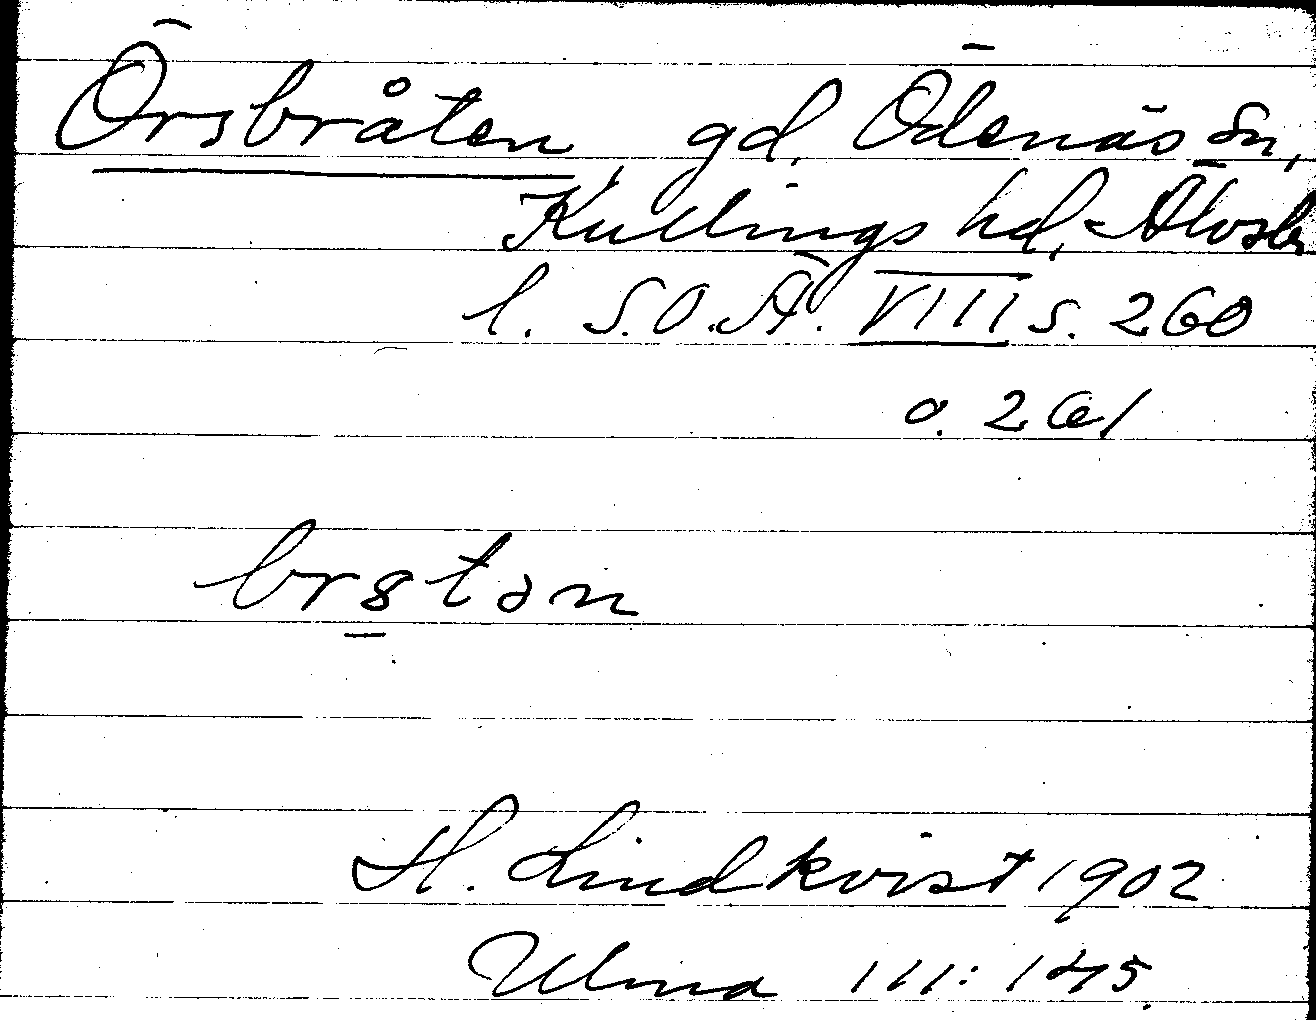 Örsbråten, gd, Ödenäs sn,
Kullings hd, Älvsb
l. S.O.Ä. VIII s. 260
o. 261
br8tan
H. Lindkvist 1902
Ulma 111:145